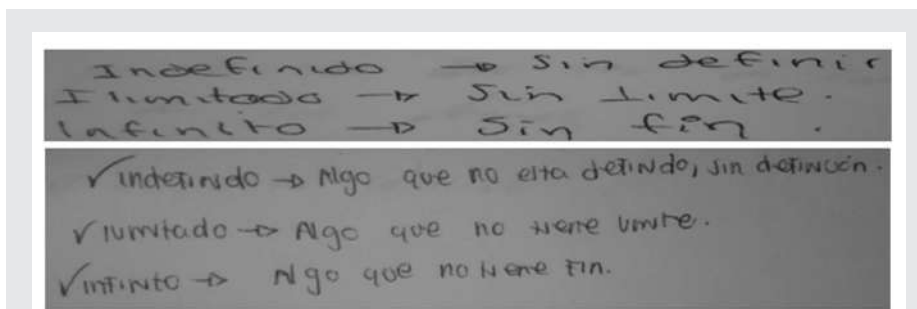 Indefinido → Sin definir
Ilimitado → Sin limite.
Infinito → Sin fin.
✓ indefinido → Algo que no esta definido, sin definición.
✓ ilimitado → Algo que no tiene limite.
✓ infinito → Algo que no tiene fin.